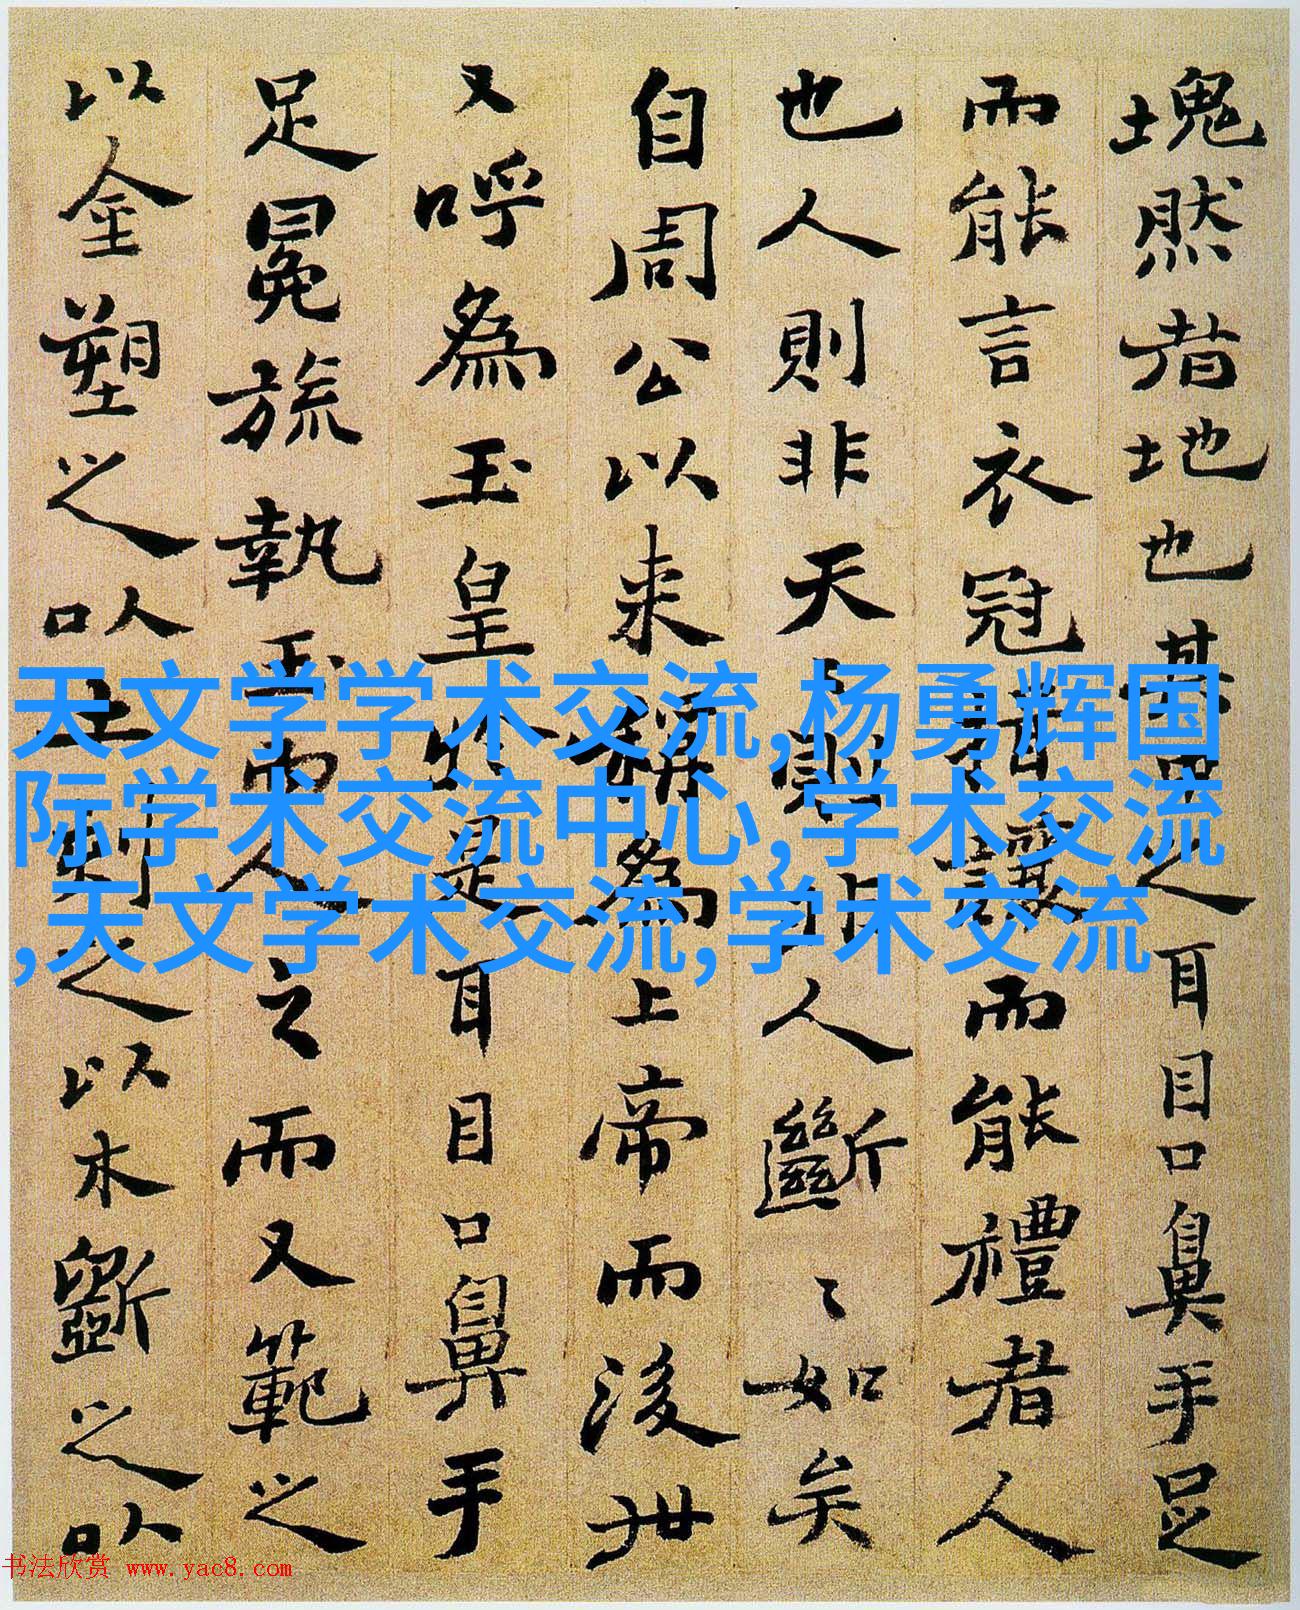 塊然者地也其之耳目口鼻手足
而能言衣冠揖讓而能禮者人
也人則非天〻則非人斷〻如矣
自周公以來稱為上帝而後世
又呼為玉皇於是耳目口鼻手
足冕旒執玉而人之而又範之
以金塑之以土刻之以木斲之以
天文学学术交流,杨勇辉国
际学术交流中心,学术交流
,天文学术交流,学术交流
书法欣赏 www.yac8.com